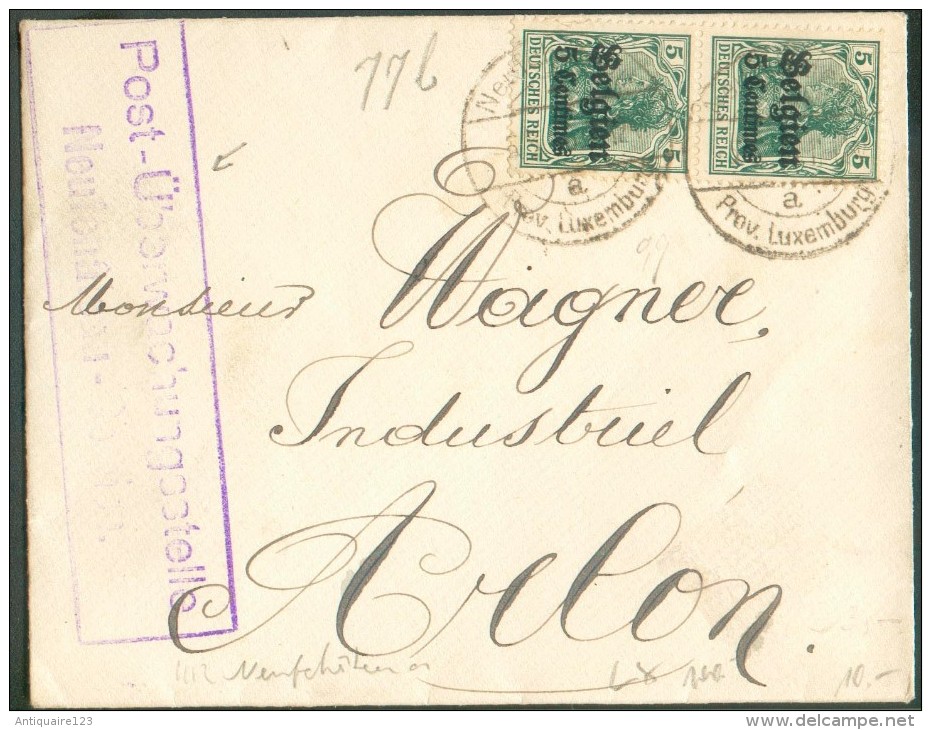 77b
5 DEUTSCHES REICH 5
Belgien
5 Centimes
5 DEUTSCHES REICH 5
Belgien
5 Centimes
a
Prov. Luxemburg
a
Prov. Luxemburg
Post-Überwachungsstelle
Monsieur Wagner,
Industriel
Arlon.
10.-
Antiquaire123
www.delcampe.net